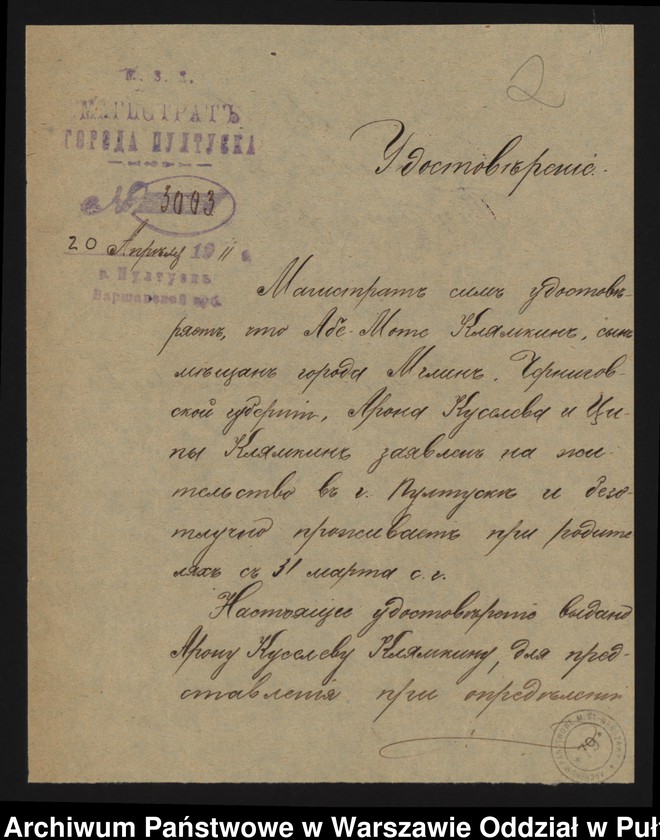 2
М. З. Д.
МАГИСТРАТЪ
ГОРОДА ПУЛТУСКА
№ 3003
20 Апрѣля 1911 г.
г. Пултускъ
Варшавской губ.
Удостовѣреніе.
Магистратъ симъ удостовѣ-
ряетъ, что Абе-Моте Клямкинъ, сынъ
мѣщанъ города Мглинъ, Чернигов-
ской губерніи, Арона Куселева и Ци-
пы Клямкинъ заявленъ на жи-
тельство въ г. Пултускѣ и безот
лучно проживаетъ при родите
ляхъ съ 31 марта с. г.
Настоящее удостовѣреніе выдано
Арону Куселеву Клямкину, для пред-
ставленія при опредѣленіи
Archiwum Państwowe w Warszawie Oddział w Puł